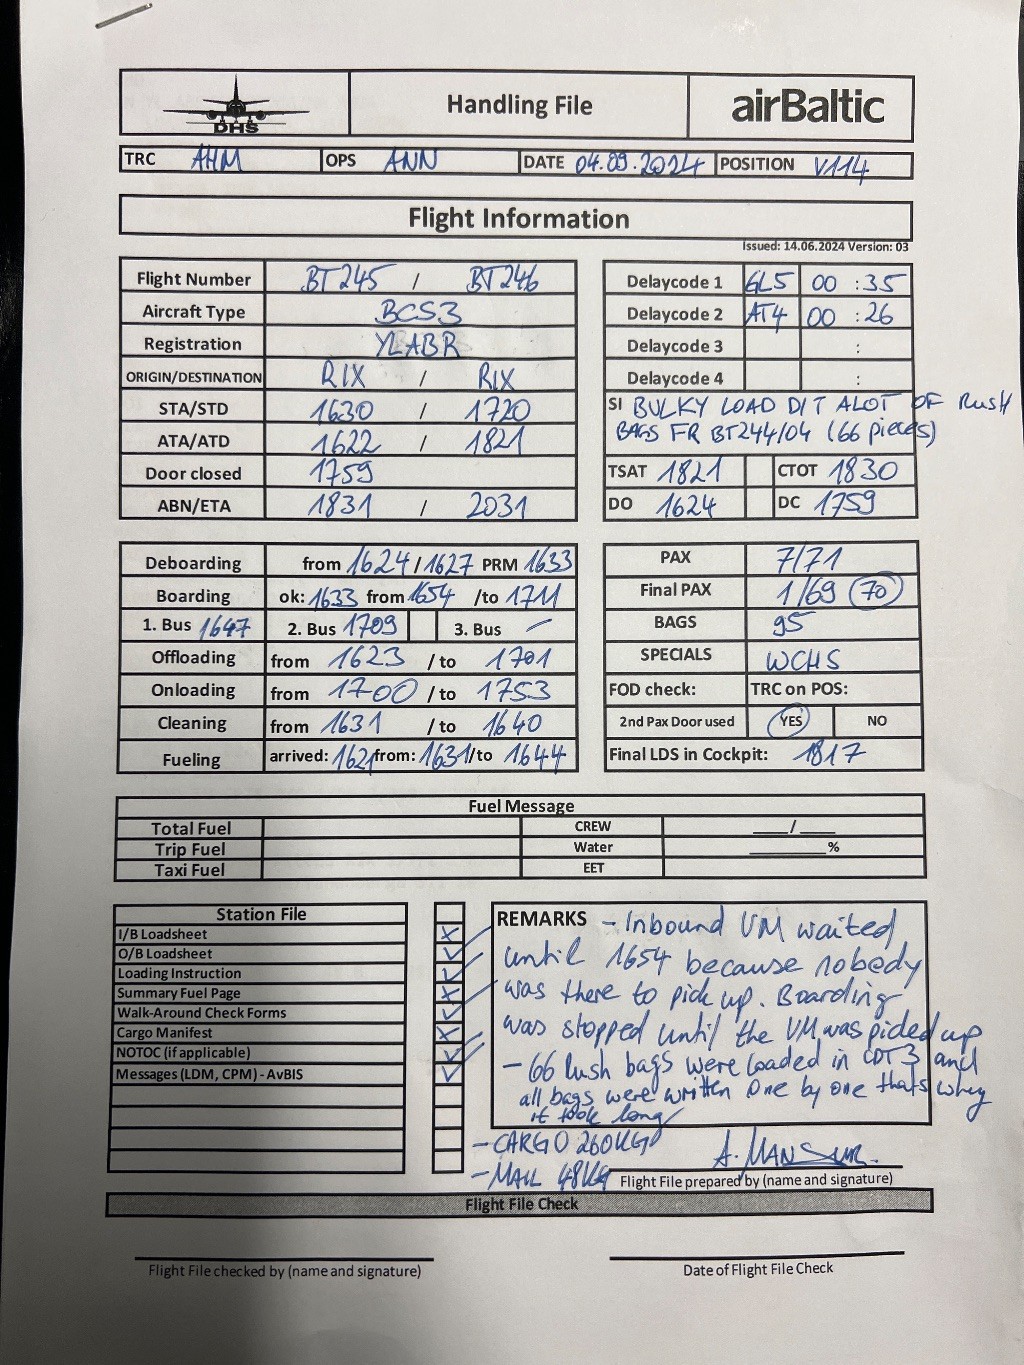 DHS Handling File airBaltic
TRC AHM OPS ANN DATE 04.09.2024 POSITION V114
Flight Information
Issued: 14.06.2024 Version: 03
Flight Number BT245 / BT246
Aircraft Type BCS3
Registration YLABR
ORIGIN/DESTINATION RIX / RIX
STA/STD 1630 / 1720
ATA/ATD 1622 / 1821
Door closed 1759
ABN/ETA 1831 / 2031
Delaycode 1 GL5 00 :35
Delaycode 2 AT4 00 :26
Delaycode 3 :
Delaycode 4 :
SI BULKY LOAD D/T ALOT OF RUSH
BAGS FR BT244/04 (66 pieces)
TSAT 1821 CTOT 1830
DO 1624 DC 1759
Deboarding from 1624/1627 PRM 1633
Boarding ok: 1633 from 1654 /to 1711
1. Bus 1647 2. Bus 1709 3. Bus –
Offloading from 1623 / to 1701
Onloading from 1700 / to 1753
Cleaning from 1631 / to 1640
Fueling arrived: 1621 from: 1631/to 1644
PAX 7/71
Final PAX 1/69 70
BAGS 95
SPECIALS WCHS
FOD check: TRC on POS:
2nd Pax Door used YES NO
Final LDS in Cockpit: 1817
Fuel Message
Total Fuel CREW ____/____
Trip Fuel Water ________%
Taxi Fuel EET
Station File
I/B Loadsheet
O/B Loadsheet
Loading Instruction
Summary Fuel Page
Walk-Around Check Forms
Cargo Manifest
NOTOC (if applicable)
Messages (LDM, CPM) - AvBIS
REMARKS – Inbound UM waited
until 1654 because nobody
was there to pick up. Boarding
was stopped until the UM was picked up
– 66 Rush bags were loaded in CPT 3 and
all bags were written one by one thats whey
it took long
– CARGO 260KG
– MAIL 48KG
A. MANSUR.
Flight File prepared by (name and signature)
Flight File Check
Flight File checked by (name and signature)
Date of Flight File Check